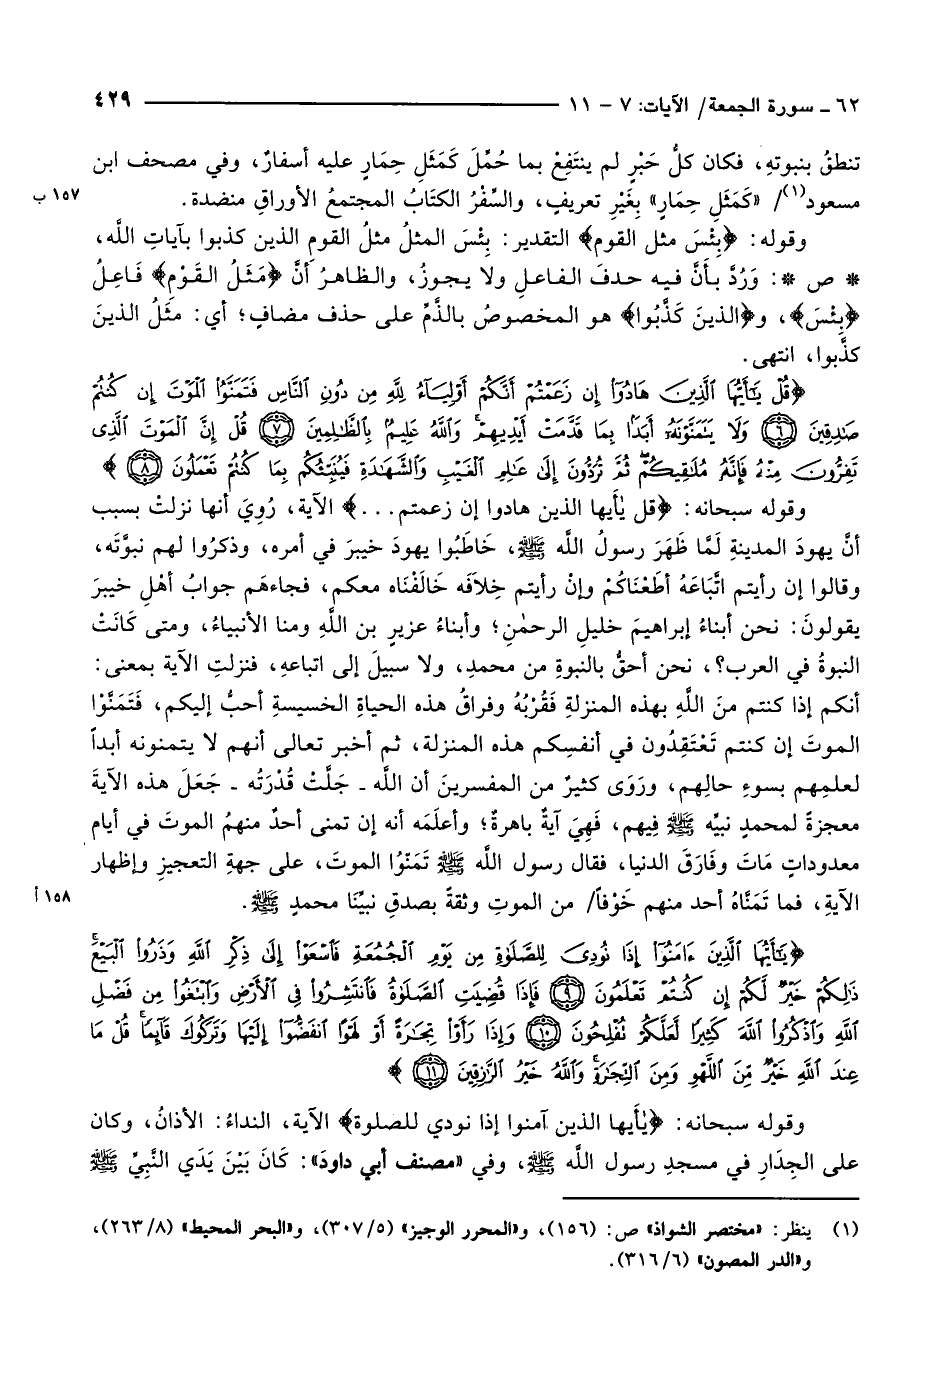 ٦٢ ـ سورة الجمعة/ الآيات: ٧ - ١١ ٤٢٩
تنطقُ بنبوتهِ، فكان كلُّ حَبْرٍ لم ينتَفِعْ بما حُمِّلَ كَمَثَلِ حِمَارٍ عليه أسفارٌ، وفي مصحف ابن
مسعود(١)/ «كَمَثَلِ حِمَارٍ» بِغَيْرِ تعريفٍ، والسِّفْرُ الكتَابُ المجتمعُ الأوراقِ منضدة. ١٥٧ ب
وقوله: ﴿بِئْسَ مثل القوم﴾ التقدير: بِئْسَ المثلُ مثلُ القومِ الذين كذبوا بآياتِ اللَّه،
* ص *: وَرُدَّ بأنَّ فيه حذفَ الفاعلِ ولا يجوزُ، والظاهرُ أنَّ ﴿مَثَلُ القَوْمِ﴾ فَاعِلُ
﴿بِئْسَ﴾، و﴿الذينَ كَذَّبُوا﴾ هو المخصوصُ بالذَّمِّ على حذف مضافٍ؛ أي: مثَلُ الذينَ
كذَّبوا، انتهى.
﴿قُلْ يَٰٓأَيُّهَا ٱلَّذِينَ هَادُوٓا۟ إِن زَعَمْتُمْ أَنَّكُمْ أَوْلِيَآءُ لِلَّهِ مِن دُونِ ٱلنَّاسِ فَتَمَنَّوُا۟ ٱلْمَوْتَ إِن كُنتُمْ
صَٰدِقِينَ ۝٦ وَلَا يَتَمَنَّوْنَهُۥٓ أَبَدًۢا بِمَا قَدَّمَتْ أَيْدِيهِمْ ۚ وَٱللَّهُ عَلِيمٌۢ بِٱلظَّٰلِمِينَ ۝٧ قُلْ إِنَّ ٱلْمَوْتَ ٱلَّذِى
تَفِرُّونَ مِنْهُ فَإِنَّهُۥ مُلَٰقِيكُمْ ۖ ثُمَّ تُرَدُّونَ إِلَىٰ عَٰلِمِ ٱلْغَيْبِ وَٱلشَّهَٰدَةِ فَيُنَبِّئُكُم بِمَا كُنتُمْ تَعْمَلُونَ ۝٨﴾
وقوله سبحانه: ﴿قل يٰأيها الذين هادوا إن زعمتم...﴾ الآية، رُوِيَ أنها نزلتْ بسبب
أنَّ يهودَ المدينةِ لَمَّا ظَهَرَ رسولُ اللَّه ﷺ، خَاطَبُوا يهودَ خيبرَ في أمره، وذكرُوا لهم نبوَّتَه،
وقالوا إن رأيتم اتِّبَاعَهُ أطَعْنَاكُمْ وإنْ رأيتم خِلاَفَه خَالَفْنَاه معكم، فجاءهَم جوابُ أهْلِ خيبرَ
يقولونَ: نحن أبناءُ إبراهيمَ خليلِ الرحمٰنِ؛ وأبناءُ عزيرِ بن اللَّهِ ومنا الأنبياءُ، ومتى كَانَتْ
النبوةُ في العرب؟، نحن أحقُّ بالنبوةِ من محمدٍ، ولا سبيلَ إلى اتباعهِ، فنزلتِ الآية بمعنى:
أنكم إذا كنتم منَ اللَّهِ بهذه المنزلةِ فَقُرْبُهُ وفراقُ هذه الحياةِ الخسيسةِ أحبُّ إليكم، فَتَمَنَّوْا
الموتَ إن كنتم تَعْتَقِدُون في أنفسِكم هذه المنزلة، ثم أخبر تعالى أنهم لا يتمنونه أبداً
لعلمِهم بسوءِ حالِهم، ورَوَى كثيرٌ من المفسرينَ أن اللَّه ـ جَلَّتْ قُدْرَتُه ـ جَعَلَ هذه الآيةَ
معجزةً لمحمدٍ نبيِّه ﷺ فِيهم، فَهِيَ آيةٌ باهرةٌ؛ وأعلَمَه أنه إن تمنى أحدٌ منهمُ الموتَ في أيام
معدوداتٍ مَاتَ وفَارَقَ الدنيا، فقال رسول اللَّه ﷺ تَمَنّوُا الموتَ، على جهةِ التعجيزِ وإظهارِ
الآيةِ، فما تَمَنَّاهُ أحد منهم خَوْفاً/ من الموتِ وثقةً بصدقِ نبيِّنَا محمدٍ ﷺ. ١٥٨ أ
﴿يَٰٓأَيُّهَا ٱلَّذِينَ ءَامَنُوٓا۟ إِذَا نُودِىَ لِلصَّلَوٰةِ مِن يَوْمِ ٱلْجُمُعَةِ فَٱسْعَوْا۟ إِلَىٰ ذِكْرِ ٱللَّهِ وَذَرُوا۟ ٱلْبَيْعَ ۚ
ذَٰلِكُمْ خَيْرٌ لَّكُمْ إِن كُنتُمْ تَعْلَمُونَ ۝٩ فَإِذَا قُضِيَتِ ٱلصَّلَوٰةُ فَٱنتَشِرُوا۟ فِى ٱلْأَرْضِ وَٱبْتَغُوا۟ مِن فَضْلِ
ٱللَّهِ وَٱذْكُرُوا۟ ٱللَّهَ كَثِيرًا لَّعَلَّكُمْ تُفْلِحُونَ ۝١٠ وَإِذَا رَأَوْا۟ تِجَٰرَةً أَوْ لَهْوًا ٱنفَضُّوٓا۟ إِلَيْهَا وَتَرَكُوكَ قَآئِمًا ۚ قُلْ مَا
عِندَ ٱللَّهِ خَيْرٌ مِّنَ ٱللَّهْوِ وَمِنَ ٱلتِّجَٰرَةِ ۚ وَٱللَّهُ خَيْرُ ٱلرَّٰزِقِينَ ۝١١﴾
وقوله سبحانه: ﴿يٰأيها الذين آمنوا إذا نودي للصلوة﴾ الآية، النداءُ: الأذانُ، وكان
على الجِدَارِ في مسجدِ رسول اللَّه ﷺ، وفي «مصنف أبي داودَ»: كَانَ بَيْنَ يَدَي النَّبِيِّ ﷺ
(١) ينظر: «مختصر الشواذ» ص: (١٥٦)، و«المحرر الوجيز» (٣٠٧/٥)، و«البحر المحيط» (٢٦٣/٨)،
و«الدر المصون» (٣١٦/٦).